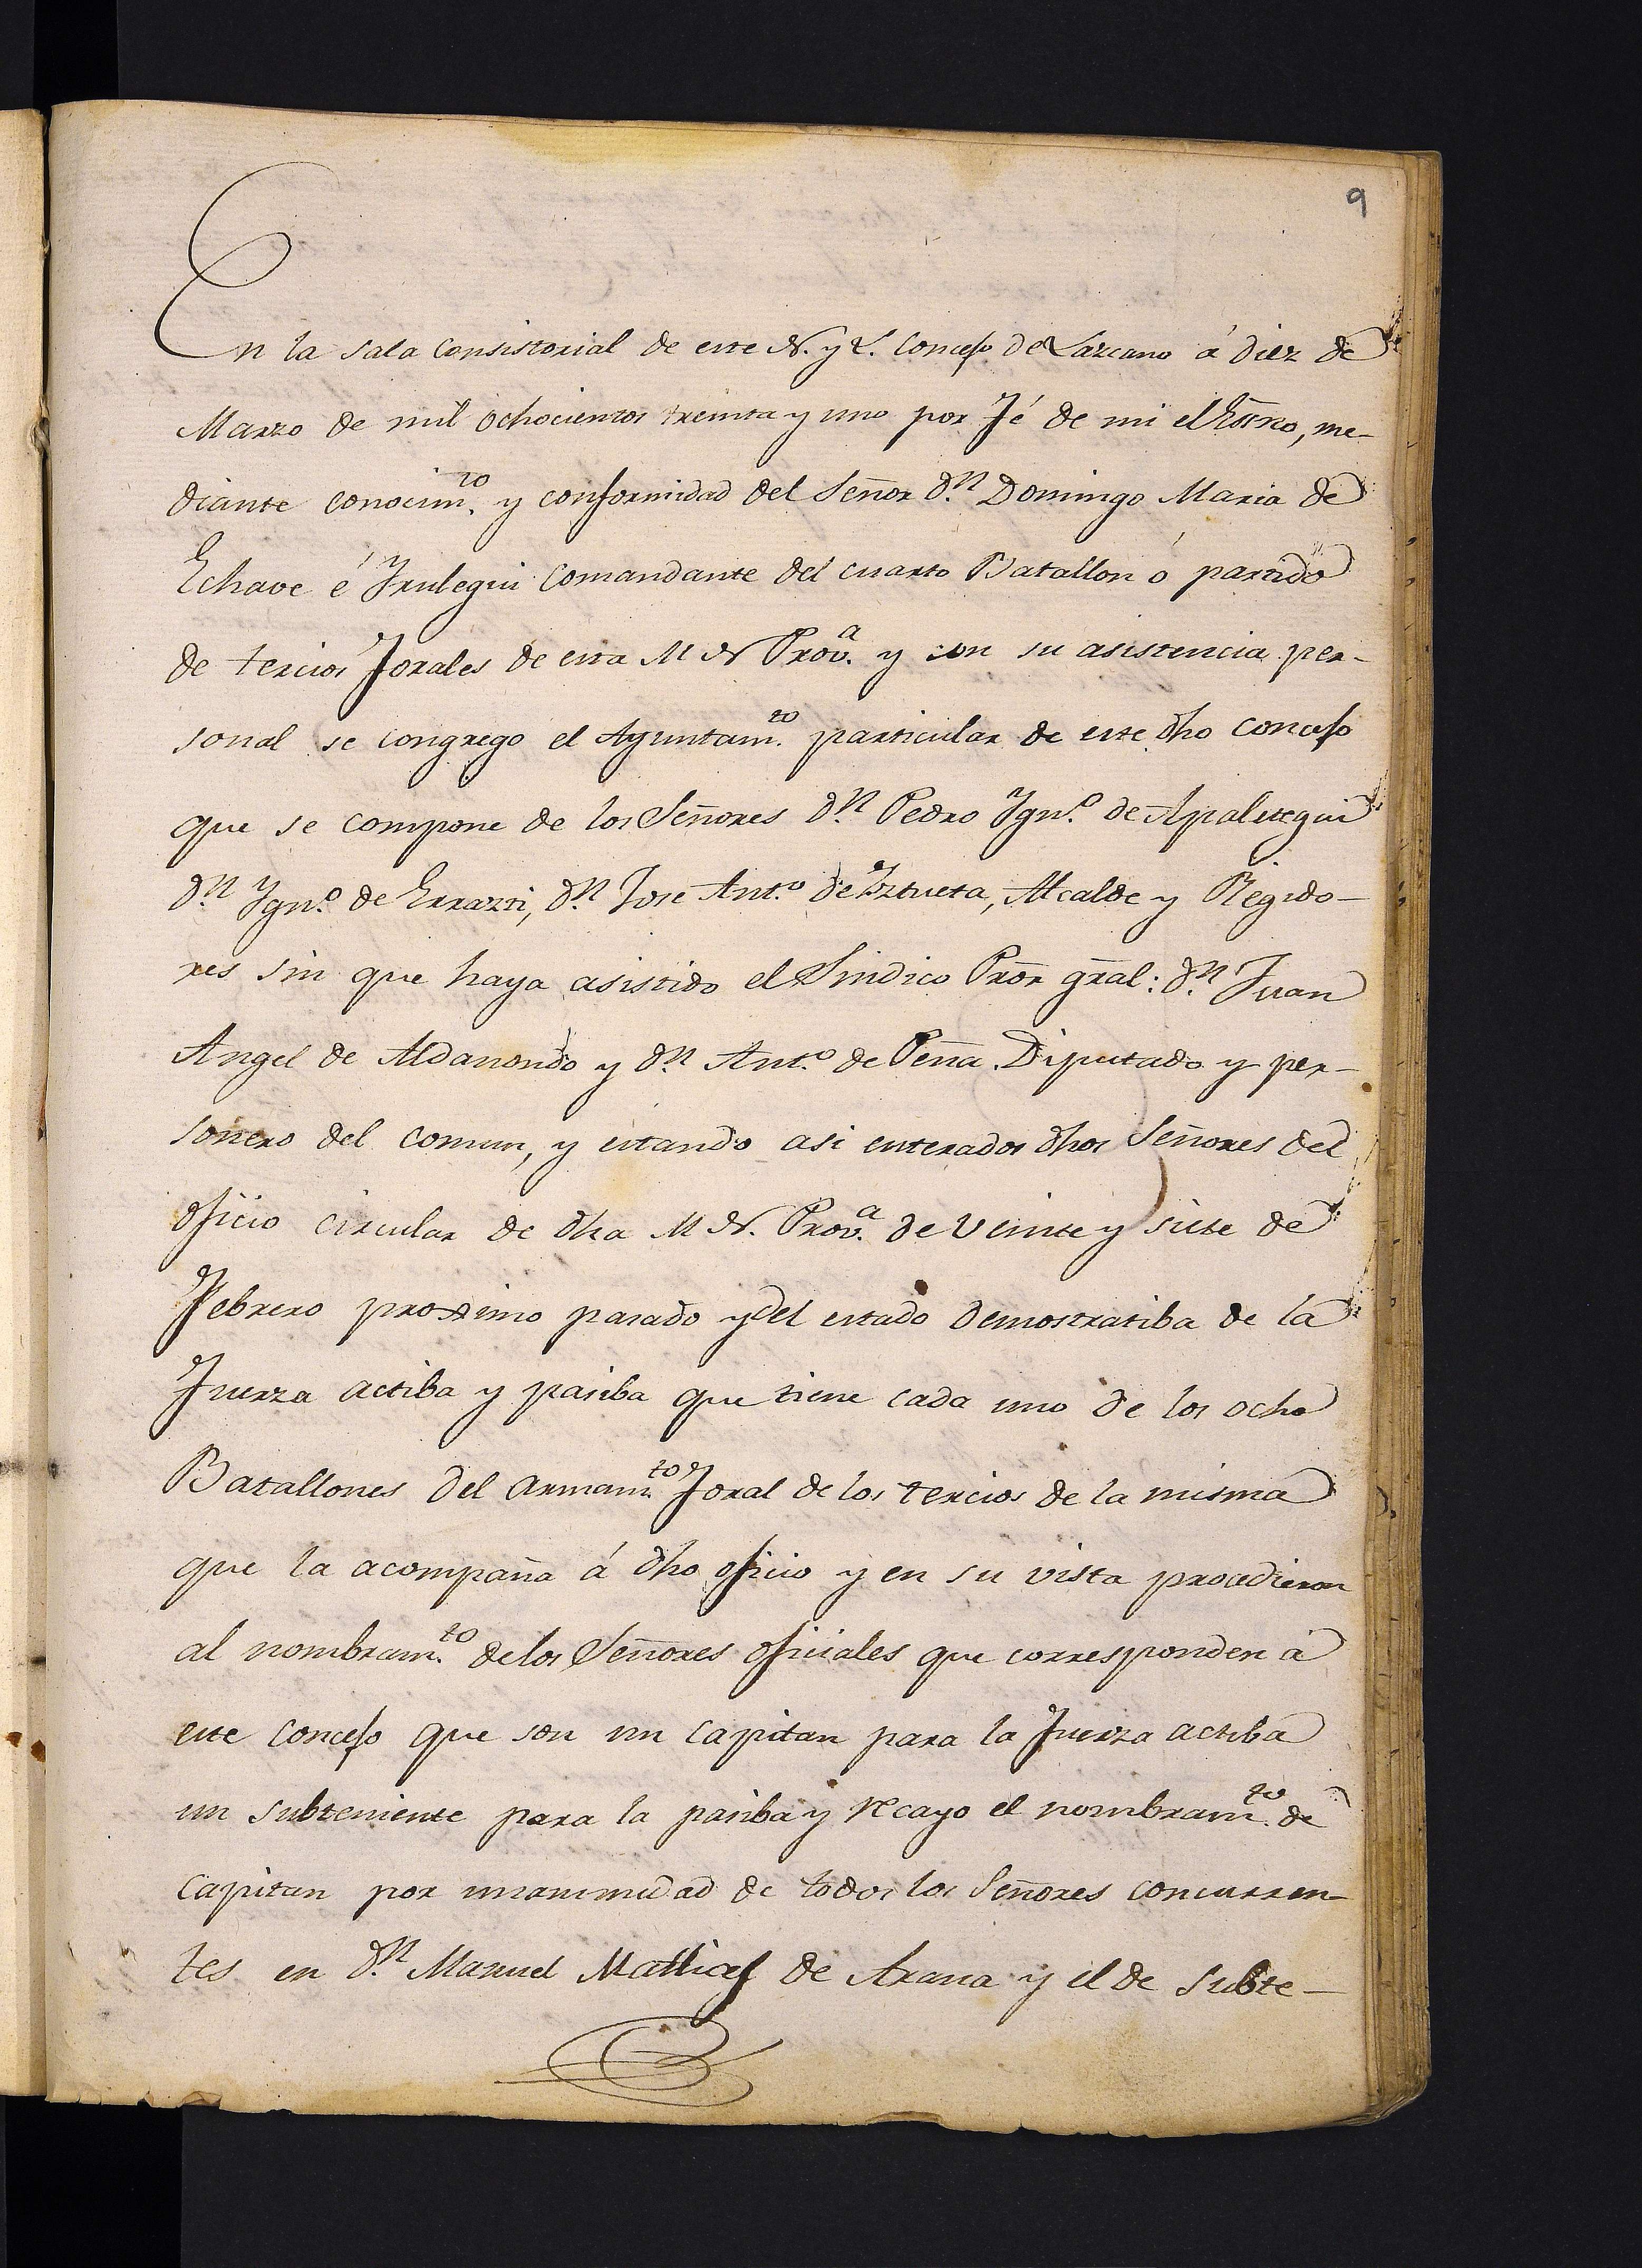 9
En la sala Consistorial de este N. y L. Concejo de Lazcano á diez de
Marzo de mil ochocientos treinta y uno por Fé de mi el Esñno, me-
diante conocim.to y conformidad del Señor d.n Domingo Maria de
Echave é Irulegui Comandante del cuarto Batallon ó partido
de tercios Forales de esta M N Prov.a y con su asistencia per-
sonal se congrego el Ayuntam.to particular de este dho concejo
que se compone de los Señores d.n Pedro Ygn.o de Apalategui
d.n Ygn.o de Errazti, d.n Jose Ant.o de Iztueta, Alcalde y Regido-
res sin que haya asistido el Sindico Pror gral: d.n Juan
Angel de Aldanondo y d.n Ant.o de Peña Diputado y per-
sonero del comun, y estando asi enterados dhos Señores del
oficio circular de dha M N. Prov.a de veinte y siete de
Febrero proximo pasado y del estado demostratiba de la
Fuerza actiba y pasiba que tiene cada uno de los ocho
Batallones del armam.to Foral de los tercios de la misma
que la acompaña á dho oficio y en su vista procedieron
al nombram.to de los Señores oficiales que corresponden á
este concejo que son un Capitan para la Fuerza actiba
un subteniente para la pasiba y recayo el nombram.to de
Capitan por unanimidad de todos los Señores concurren-
tes en d.n Manuel de Arana y el de subte-